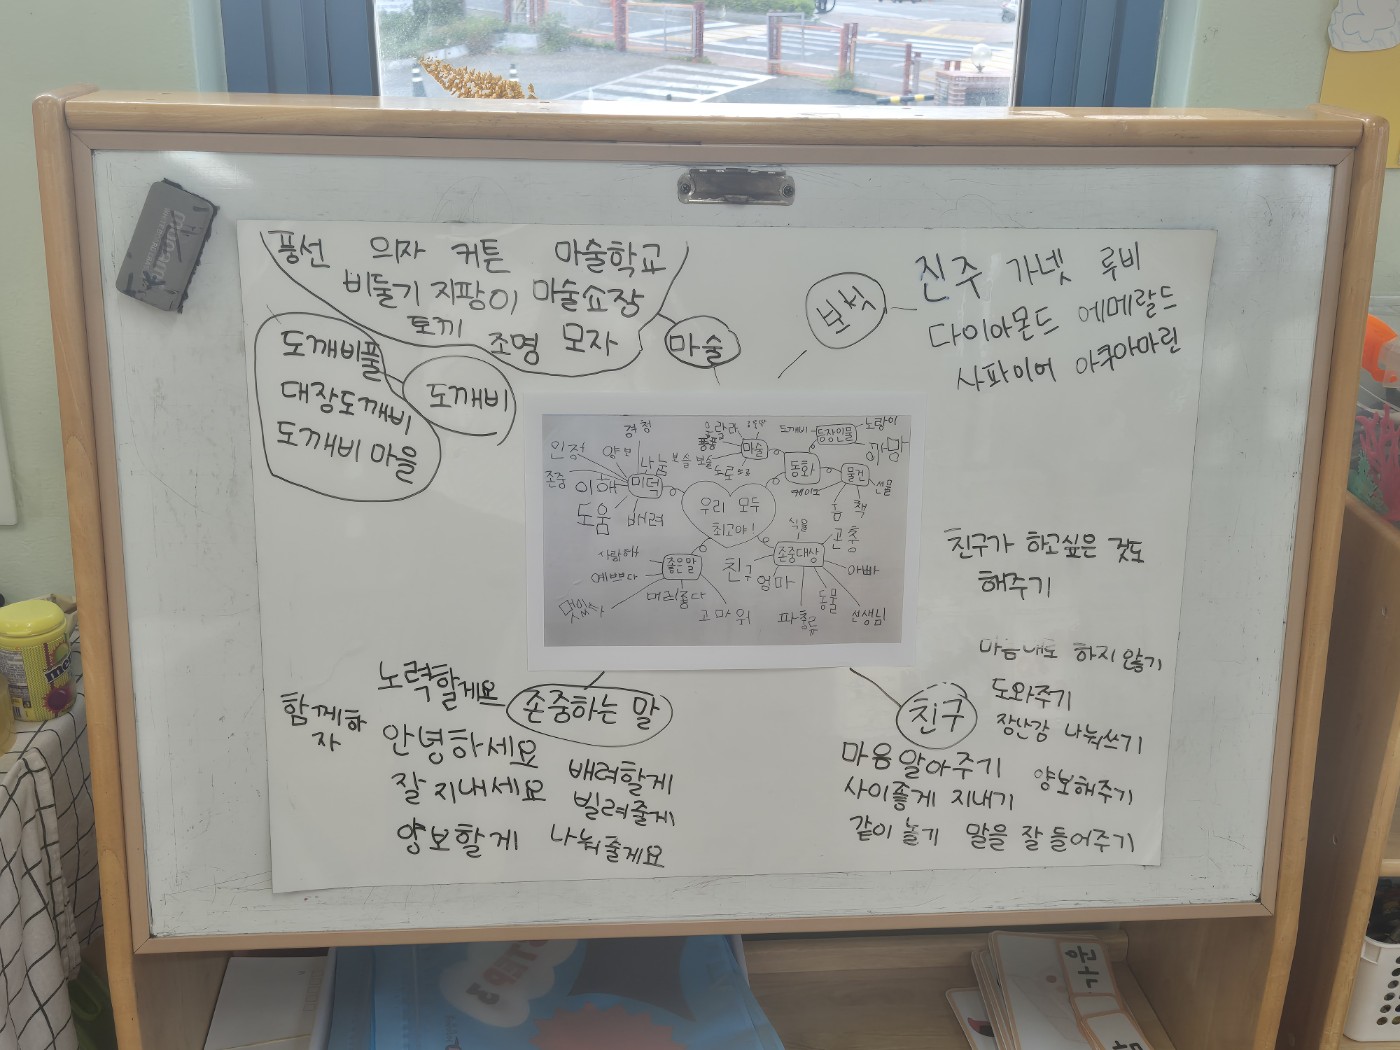 풍선 의자 커튼 마술학교
비둘기 지팡이 마술쇼장
토끼 조명 모자
마술
도깨비풀
대장도깨비
도깨비 마을
도깨비
보석
진주 가넷 루비
다이아몬드 에메랄드
사파이어 아쿠아마린
우리 모두
최고야!
미덕
경청
인정
양보
나눔
존중
이해
도움
배려
마술
동화
등장인물
도깨비
노랑이
까망
물건
선물
책
존중대상
식물
곤충
친구
엄마
아빠
동물
파충류
선생님
좋은말
사랑해
예쁘다
멋있다
고마워
존중하는 말
노력할게요
함께하
자
안녕하세요
잘 지내세요
양보할게
배려할게
빌려줄게
나눠줄게요
친구
친구가 하고싶은 것도
해주기
마음대로 하지 않기
도와주기
장난감 나눠쓰기
마음 알아주기
양보해주기
사이좋게 지내기
같이 놀기 말을 잘 들어주기
STEP3